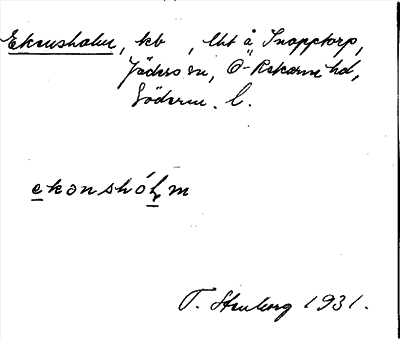 Ekensholm, kb , lht å Snopptorp,
Jäders sn, Ö-Rekarne hd,
Söderm. l.
ekənshólm
T. Stenborg 1931.